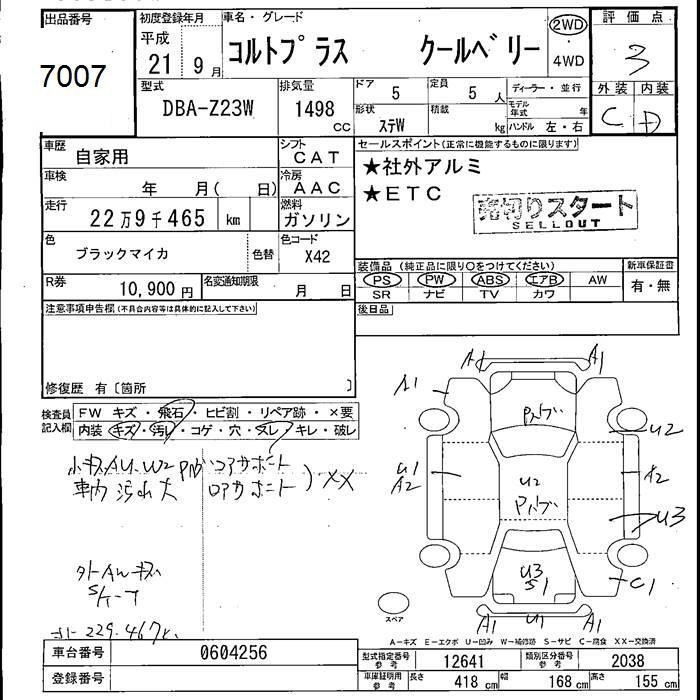 出品番号
7007
初度登録年月
平成
21 9月
車名・グレード
コルトプラス クールベリー
2WD
・
4WD
評価点
3
外装 内装
C D
型式
DBA-Z23W
排気量
1498
CC
ドア
5
定員
5 人
ディーラー・並行
形状
ステW
積載
kg
モデル年式 年
ハンドル 左・右
車歴
自家用
シフト
CAT
車検
年 月( 日)
冷房
AAC
走行
22万9千465 km
燃料
ガソリン
色
ブラックマイカ
色替
色コード
X42
R券
10,900円
名変通知期限
月 日
セールスポイント(正常に機能するものに限ります)
★社外アルミ
★ETC
売切りスタート
SELLOUT
装備品 (純正品に限り○をつけてください)
新車保証書
PS PW ABS エアB AW
有・無
SR ナビ TV カワ
後日品
注意事項申告欄(不具合内容等は具体的に記入して下さい)
修復歴 有〔箇所 〕
検査員
記入欄
FW キズ・飛石・ヒビ割・リペア跡・×要
内装 キズ・汚レ・コゲ・穴・スレ・キレ・破レ
小キズAU.W2 Pルーフ コアサポート
車内汚れ大 ロアサポート)XX
外AWキズ
229.467k
A1 A1
A1
Pルーフ
U2
U1
A2
U2
Pルーフ
A2
U3
U3
S1
C1
A1 U1 A1
スペア
A-キズ E-エクボ U-凹み W-補修跡 S-サビ C-腐食 XX-交換済
車台番号
0604256
登録番号
型式指定番号
参考
12641
類別区分番号
参考
2038
車庫証明用
参考
長さ
418 cm
幅
168 cm
高さ
155 cm